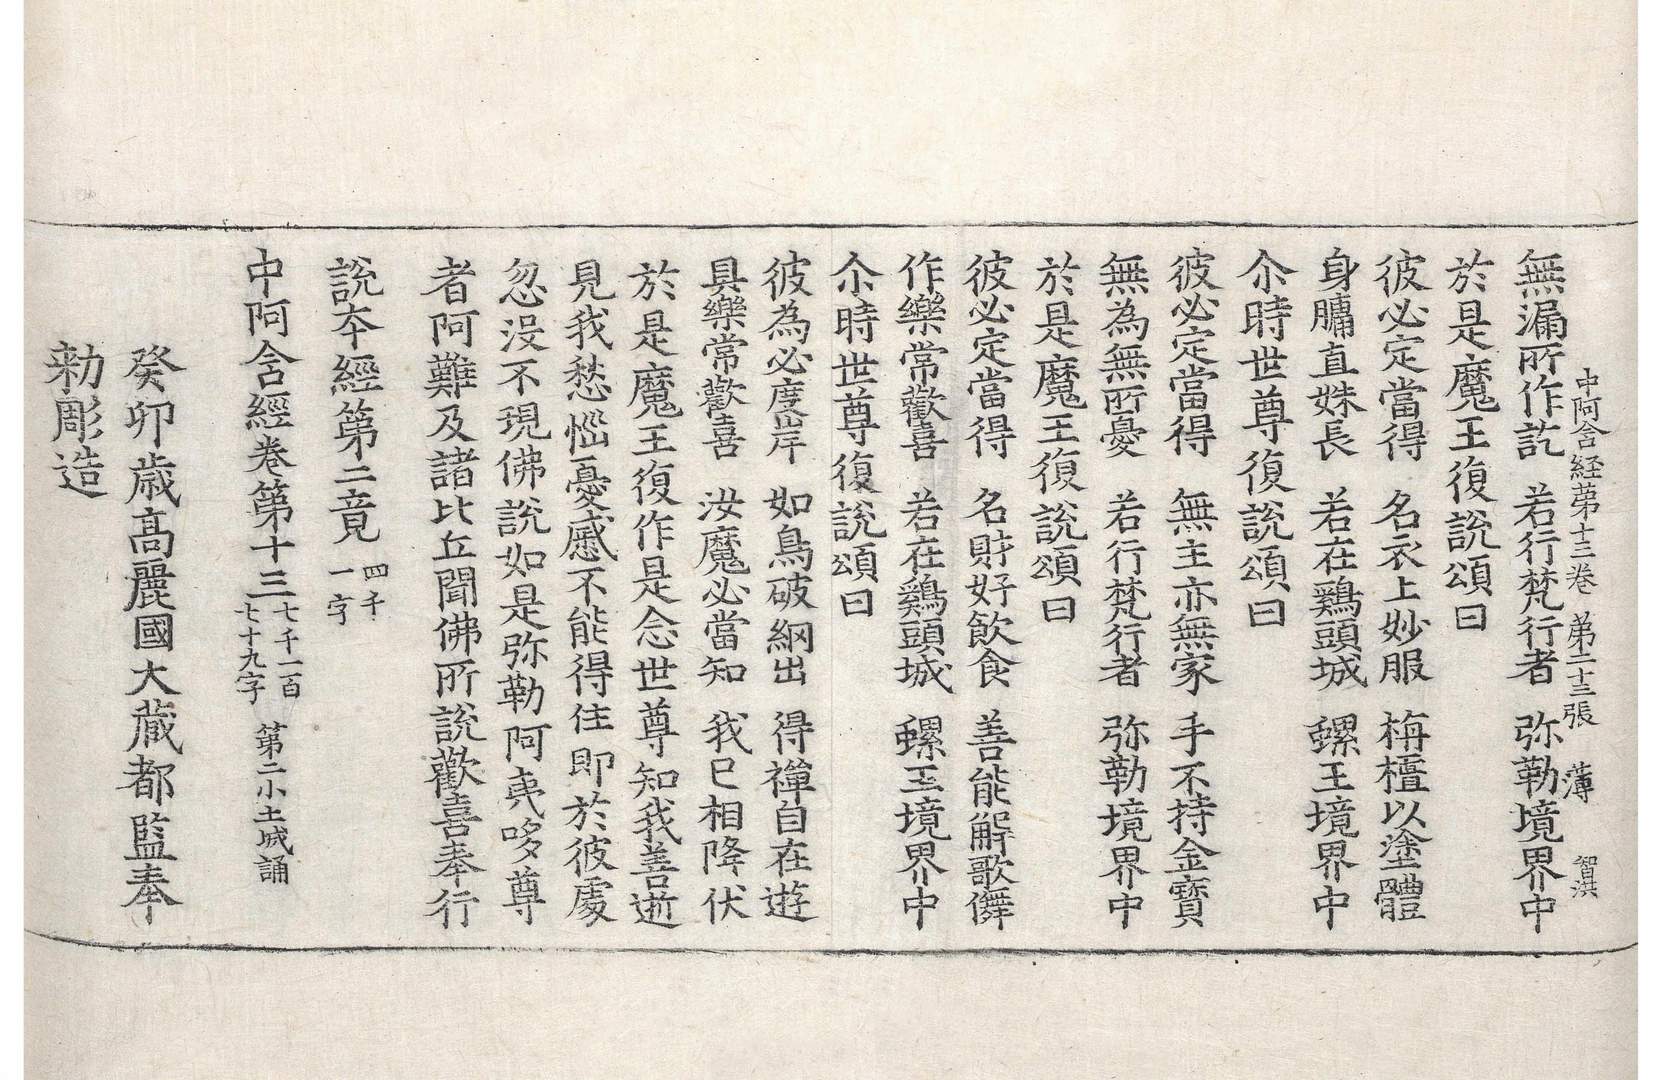 中阿含経第十三巻　第二十三張　薄　智洪
無漏所作訖　若行梵行者　弥勒境界中
於是魔王復說頌曰
彼必定當得　名衣上妙服　栴檀以塗體
身𦟛直姝長　若在鷄頭城　螺王境界中
尒時世尊復說頌曰
彼必定當得　無主亦無家　手不持金寶
無為無所憂　若行梵行者　弥勒境界中
於是魔王復說頌曰
彼必定當得　名財好飲食　善能解歌儛
作樂常歡喜　若在鷄頭城　螺王境界中
尒時世尊復說頌曰
彼為必度岸　如鳥破網出　得禪自在遊
具樂常歡喜　汝魔必當知　我已相降伏
於是魔王復作是念世尊知我善逝
見我愁惱憂慼不能得住即於彼處
忽沒不現佛說如是弥勒阿夷哆尊
者阿難及諸比丘聞佛所說歡喜奉行
說夲經第二竟　四千一字
中阿含經卷第十三　七千一百七十九字　第二小土城誦
癸卯歳高麗國大藏都監奉
勅彫造